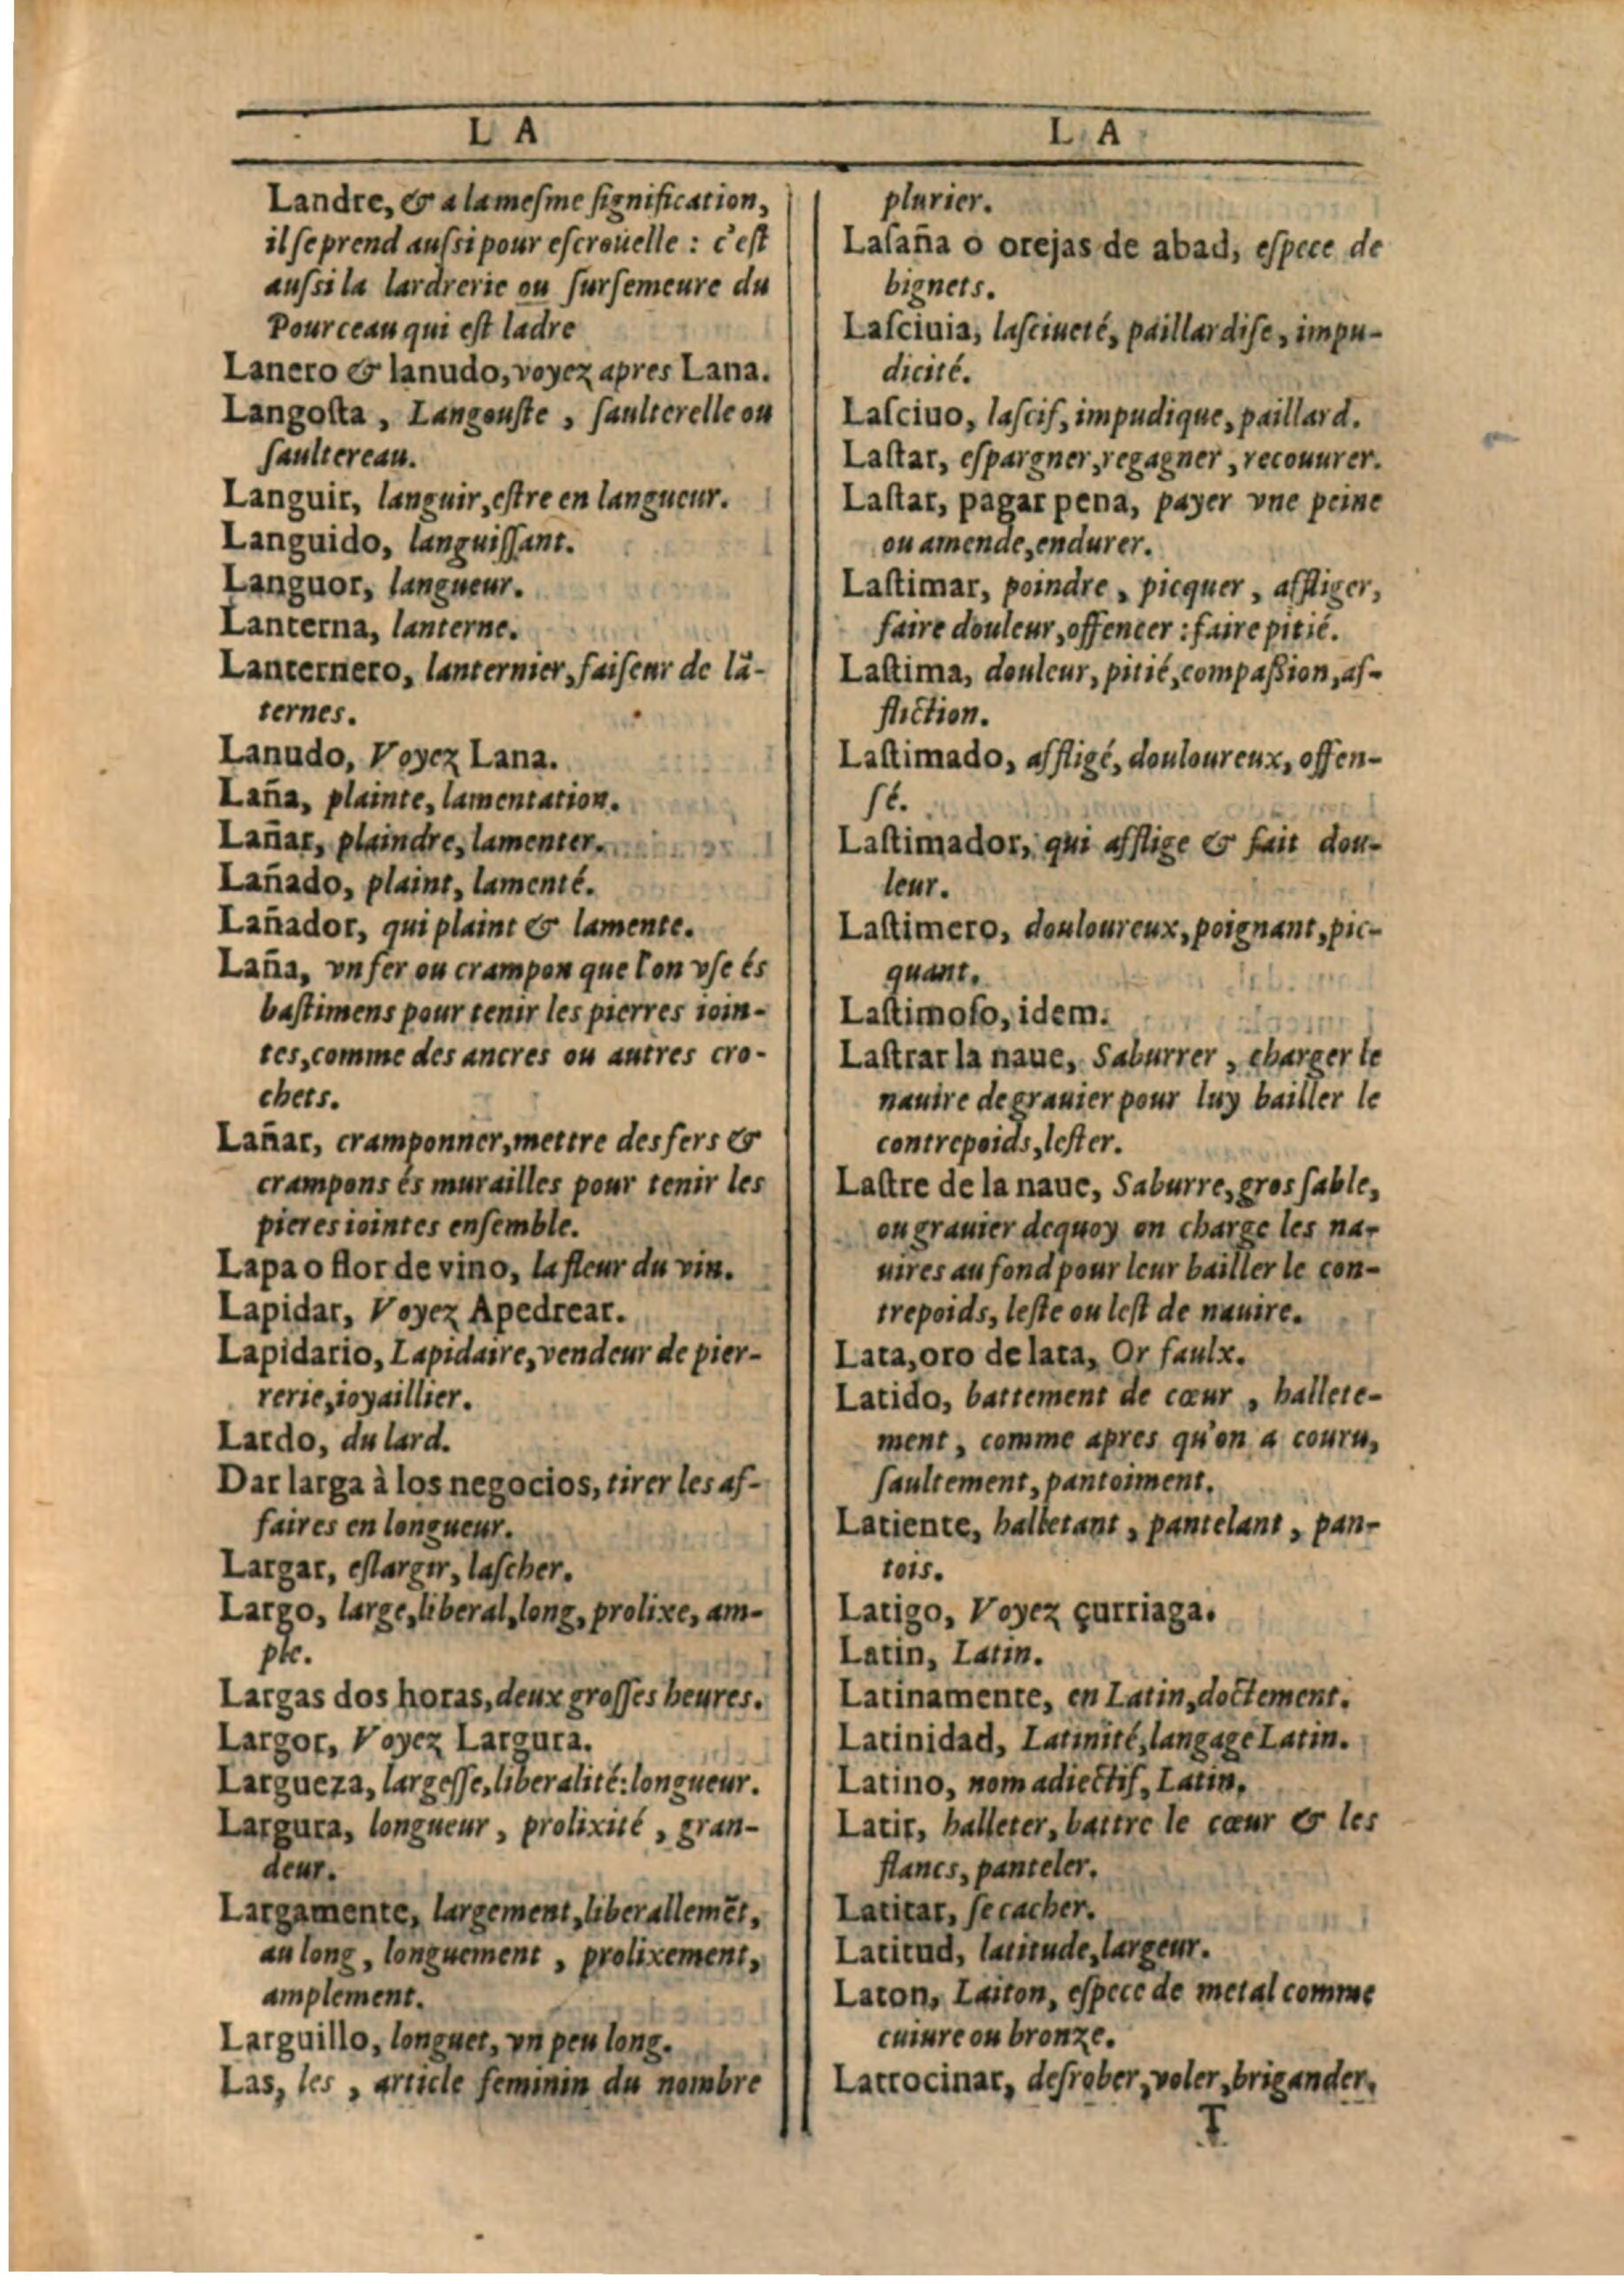 L A
Landre, & a la mesme signification,
il se prend aussi pour escroüelle : c'est
aussi la lardrerie ou sursemeure du
Pourceau qui est ladre
Lanero & lanudo, voyez apres Lana.
Langosta , Langouste , saulterelle ou
saultereau.
Languir, languir, estre en langueur.
Languido, languissant.
Languor, langueur.
Lanterna, lanterne.
Lanternero, lanternier, faiseur de lã-
ternes.
Lanudo, Voyez Lana.
Laña, plainte, lamentation.
Lañar, plaindre, lamenter.
Lañado, plaint, lamenté.
Lañador, qui plaint & lamente.
Laña, vn fer ou crampon que l'on vse és
bastimens pour tenir les pierres ioin-
tes, comme des ancres ou autres cro-
chets.
Lañar, cramponner, mettre des fers &
crampons és murailles pour tenir les
pieres iointes ensemble.
Lapa o flor de vino, la fleur du vin.
Lapidar, Voyez Apedrear.
Lapidario, Lapidaire, vendeur de pier-
rerie, ioyaillier.
Lardo, du lard.
Dar larga à los negocios, tirer les af-
faires en longueur.
Largar, eslargir, lascher.
Largo, large, liberal, long, prolixe, am-
ple.
Largas dos horas, deux grosses heures.
Largor, Voyez Largura.
Largueza, largesse, liberalité: longueur.
Largura, longueur , prolixité , gran-
deur.
Largamente, largement, liberallemẽt,
au long , longuement , prolixement,
amplement.
Larguillo, longuet, vn peu long.
Las, les , article feminin du nombre
L A
plurier.
Lasaña o orejas de abad, espece de
bignets.
Lasciuia, lasciueté, paillardise, impu-
dicité.
Lasciuo, lascif, impudique, paillard.
Lastar, espargner, regagner, recouurer.
Lastar, pagar pena, payer vne peine
ou amende, endurer.
Lastimar, poindre , picquer , affliger,
faire douleur, offencer : faire pitié.
Lastima, douleur, pitié, compassion, af-
fliction.
Lastimado, affligé, douloureux, offen-
sé.
Lastimador, qui afflige & fait dou-
leur.
Lastimero, douloureux, poignant, pic-
quant.
Lastimoso, idem.
Lastrar la naue, Saburrer , charger le
nauire de grauier pour luy bailler le
contrepoids, lester.
Lastre de la naue, Saburre, gros sable,
ou grauier dequoy on charge les na-
uires au fond pour leur bailler le con-
trepoids, leste ou lest de nauire.
Lata, oro de lata, Or faulx.
Latido, battement de cœur , hallete-
ment , comme apres qu'on a couru,
saultement, pantoiment.
Latiente, halletant , pantelant , pan-
tois.
Latigo, Voyez çurriaga.
Latin, Latin.
Latinamente, en Latin, doctement.
Latinidad, Latinité, langage Latin.
Latino, nom adiectif, Latin.
Latir, halleter, battre le cœur & les
flancs, panteler.
Latitar, se cacher.
Latitud, latitude, largeur.
Laton, Laiton, espece de metal comme
cuiure ou bronze.
Latrocinar, desrober, voler, brigander.
T